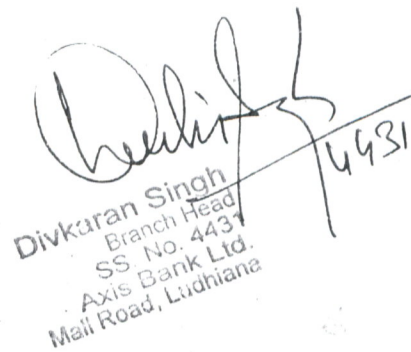 4431
Divkaran Singh
Branch Head
SS. No. 4431
Axis Bank Ltd.
Mall Road, Ludhiana